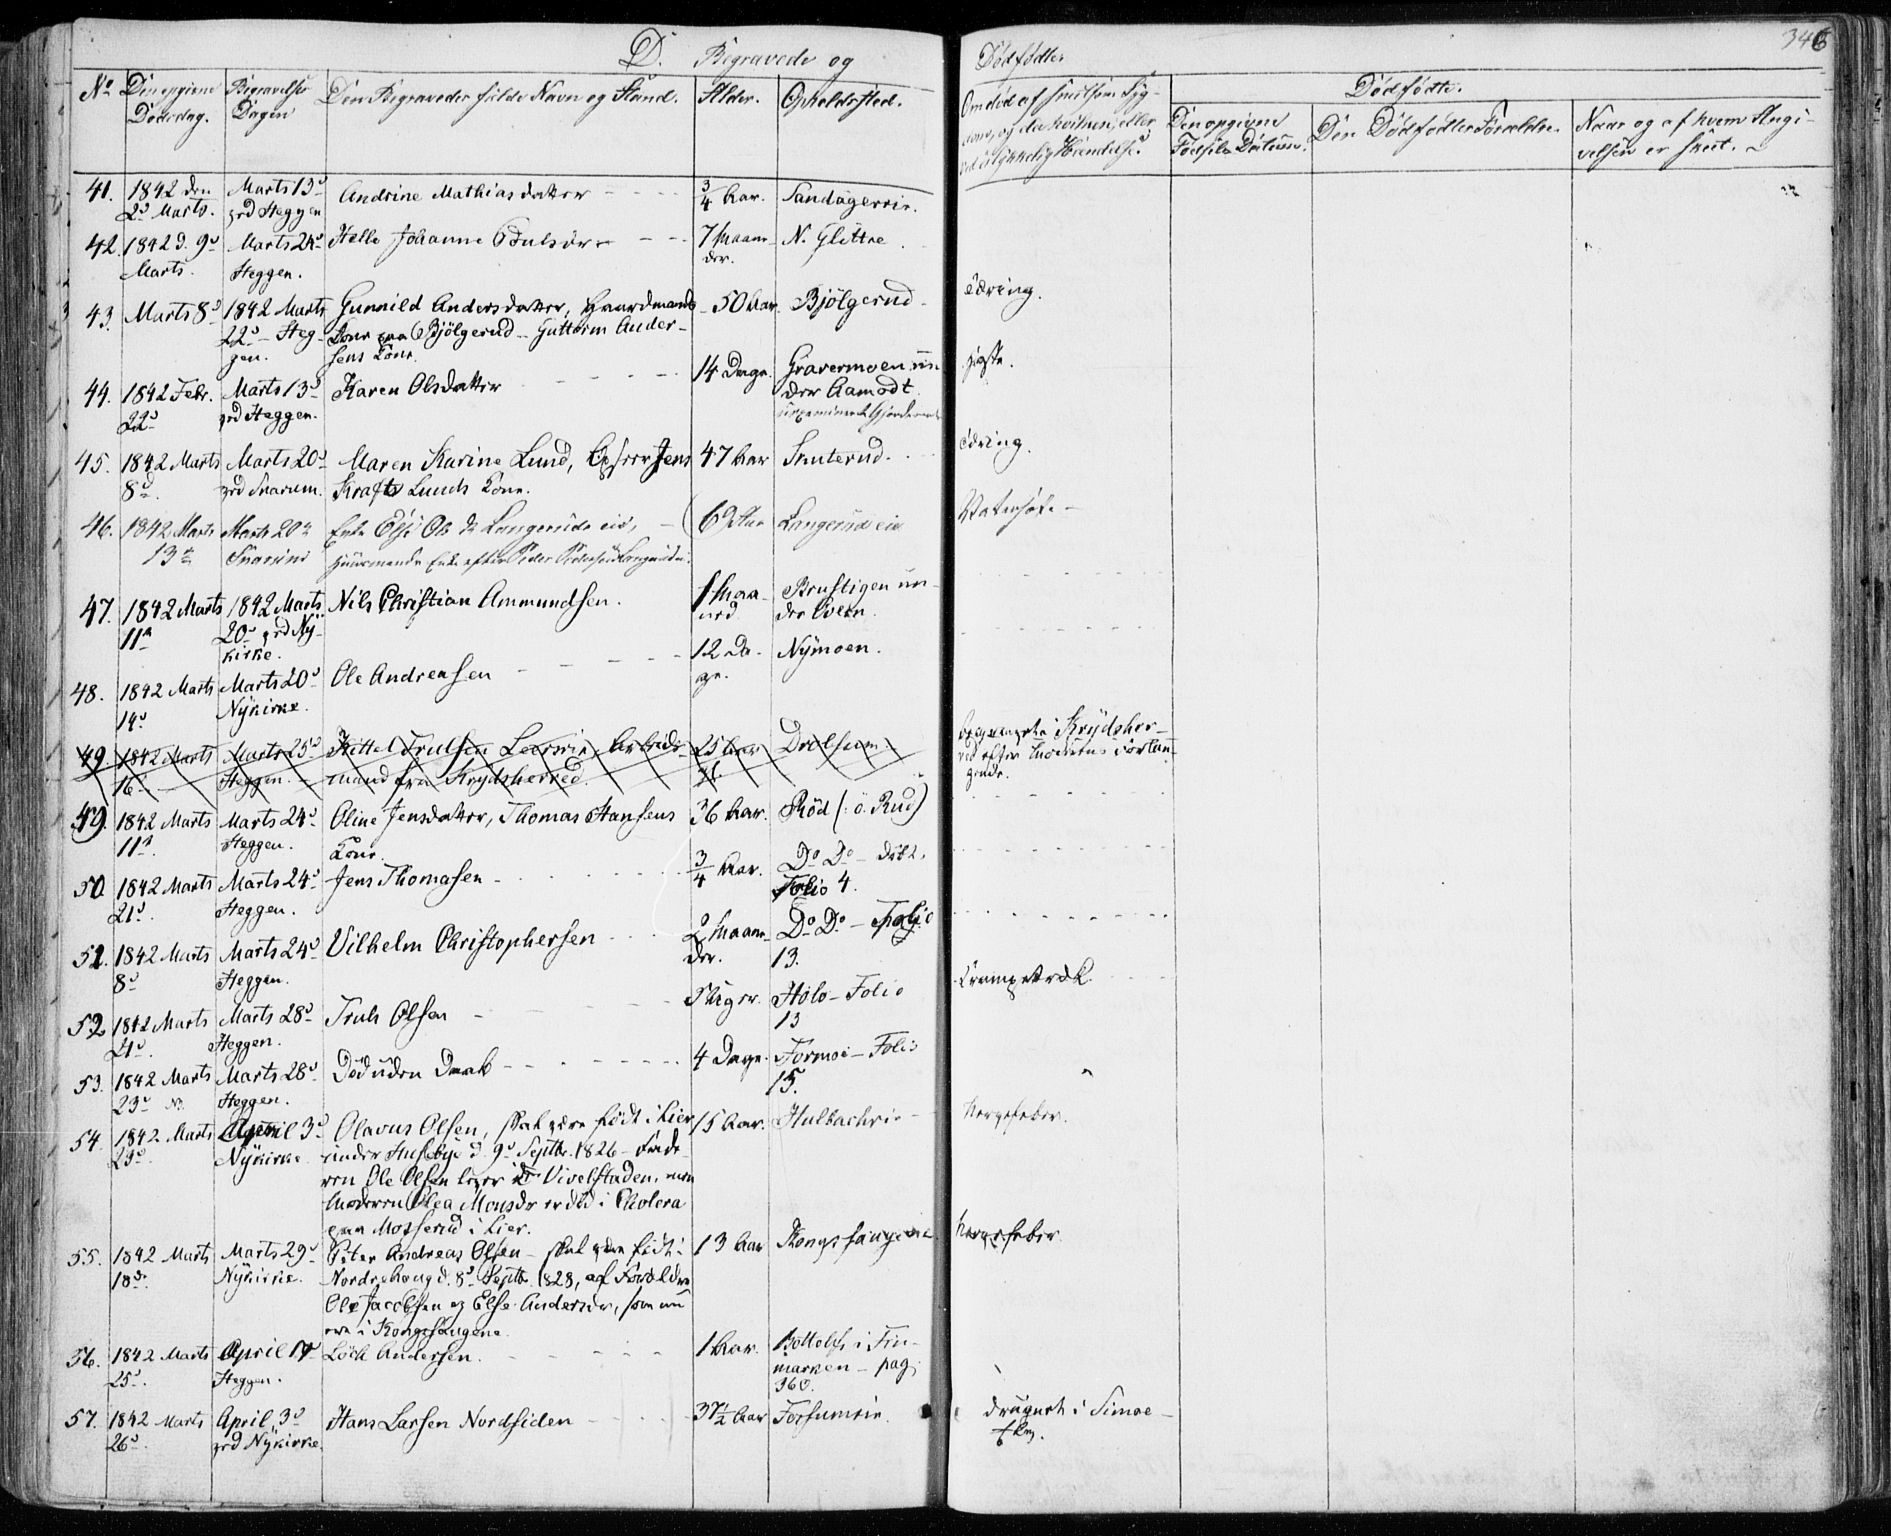 D. Begravede og Dødfødte.
346
No
Den opgivne Dødsdag.
Begravelses Dagen
Den Begravedes fulde Navn og Stand.
Alder.
Opholdssted.
Dødfødte.
Den opgivne Fødsels Datum.
Den Dødfødtes Forældre.
Naar og af hvem Angivelsen er skeet.
41. 1842 den 2d Marts. Marts 13d ved Heggen Andrine Mathiasdatter 3/4 Aar. Sandagereie.
42. 1842 d. 9d Marts. Marts 24d Heggen. Helle Johanne 7 Maaneder. N. Glittre
43. Marts 8d 1842 Marts 22d Heggen. Gunnild Andersdatter, Gaardmands
Kone paa Bjølgerud Guttorm Andersens Kone. 50 Aar Bjølgerud
44. 1842 Febr. 22d Marts 13d ved Heggen. Karen Olsdatter 14 Dage. Gravermoen under Aamodt
45. 1842 Marts 8d Marts 20d ved Snarum. Maren Karine Lund, Jens
Krafts Lunds Kone. 47 Aar Snuterud.
46. 1842 Marts 13de Marts 20de Snarum Enke Else Langeruds eie,
69 Aar Langerud eie Vatersot
47. 1842 Marts 11te 1842 Marts 20d ved Nykirke. Nils Christian Ammundsen. 1 Maaned under
48. 1842 Marts 14d Marts 20d Nykirke. Ole Andreassen 12 Dage. Nymoen.
49. 1842 Marts 16d Marts 25d Heggen. Kittel Trulsen Arbeidsmand fra Krydsherred 25 Aar
49. 1842 Marts 11te. Marts 24d Heggen. Oline Jensdatter, Thomas Hansens Kone. 36 Aar. Rød (: ö. Rud)
50 1842 Marts 21d. Marts 24d Heggen. Jens Thomasen 3/4 Aar. Do Do Folio 4.
51. 1842 Marts 8d Marts 24d Heggen. Vilhelm Christophersen 2 Maaneder. Do Do Folio 13.
52 1842 Marts 21d. Marts 28d Heggen. Truls Olsen 5 Uger. Holo Folio 13 Krampetræk.
53. 1842 Marts 23d Marts 28d Heggen. Død uden Daab 4 Dage. Formoe Folio 15.
54. 1842 Marts 23d. April 3d Nykirke Olavus Olsen, skal være født i Lier
under Husebye d. 9d Septbr. 1826 - Faderen Ole Olsen i Vivelstaden, men
Moderen Olea Monsdr er død i Cholera
paa i Lier. 15 Aar. Hulbachseie Nervefeber.
55. 1842 Marts 18de Marts 29d Nykirke. Peter Andreas Olsen - skal være født i
Norderhoug d. 8d Septbr. 1828, af Forældre
Ole Jacobsen og Else Andersdr, som nu
ere i Kongsfangene 13 Aar Kongsfangene Nervefeber.
56. 1842 Marts 25d. April Heggen. Andersen. 1 Aar. Bottolfs i Finmarken - pag. 360.
57. 1842 Marts 26d. April 3d ved Nykirke. Hans Larsen Nordsiden 37 1/2 Aar Forsumeie. druknet i Simoe-Elv.